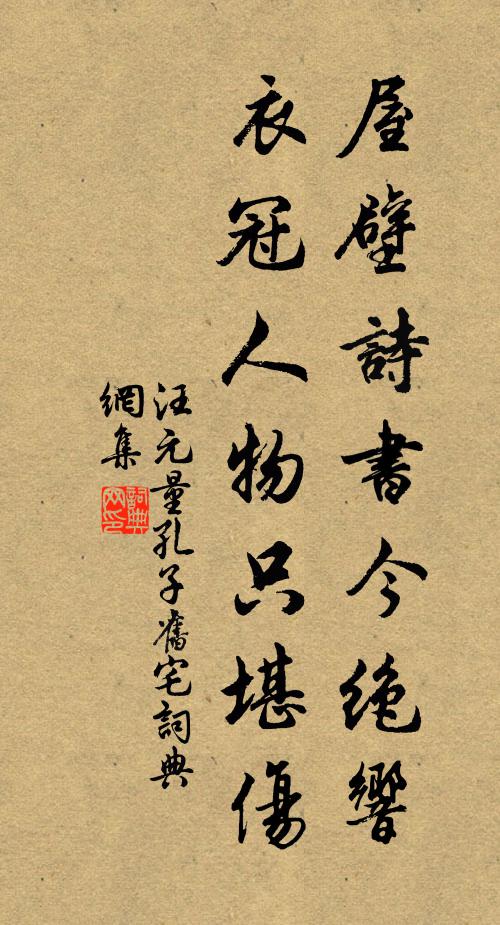 屋壁詩書今絶響
衣冠人物只堪傷
汪元量孔子舊宅詞典
網集
詞典
网印